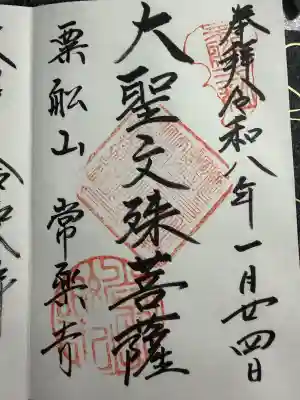 奉拝令和八年一月廿四日
大聖文殊菩薩
粟船山 常楽寺